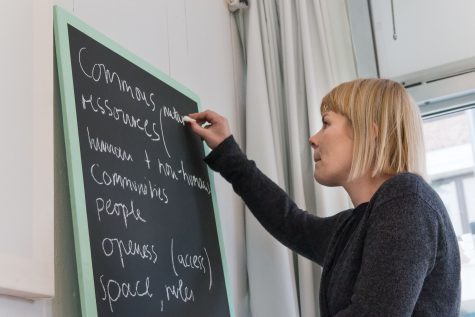 Commons
ressources (nature
human + non-human
communities
people
openess (access)
space, rules